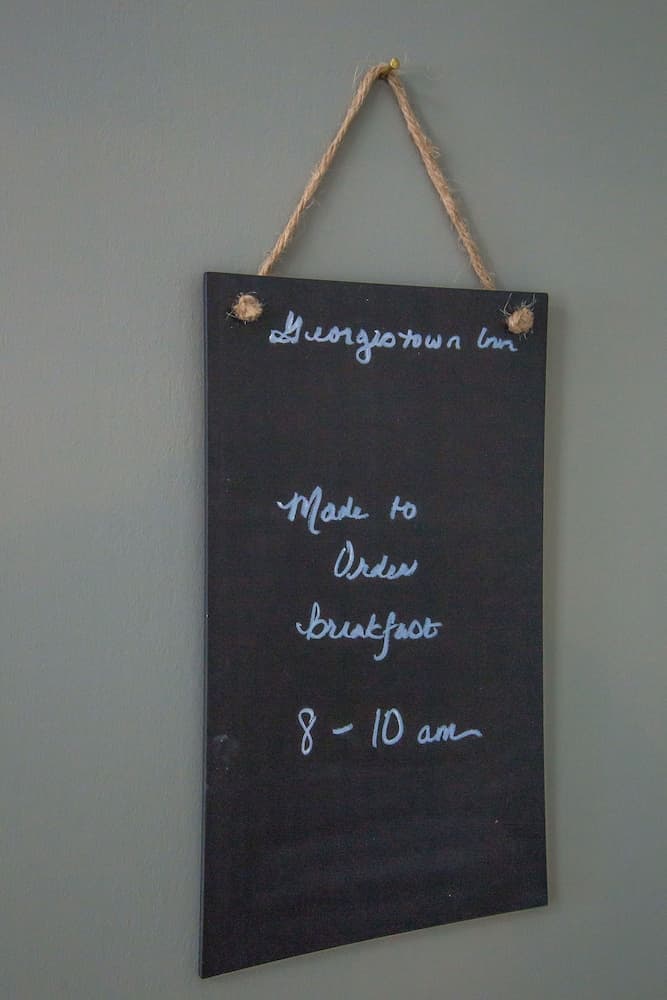 Georgetown Inn
Made to
Order
breakfast
8 - 10 am